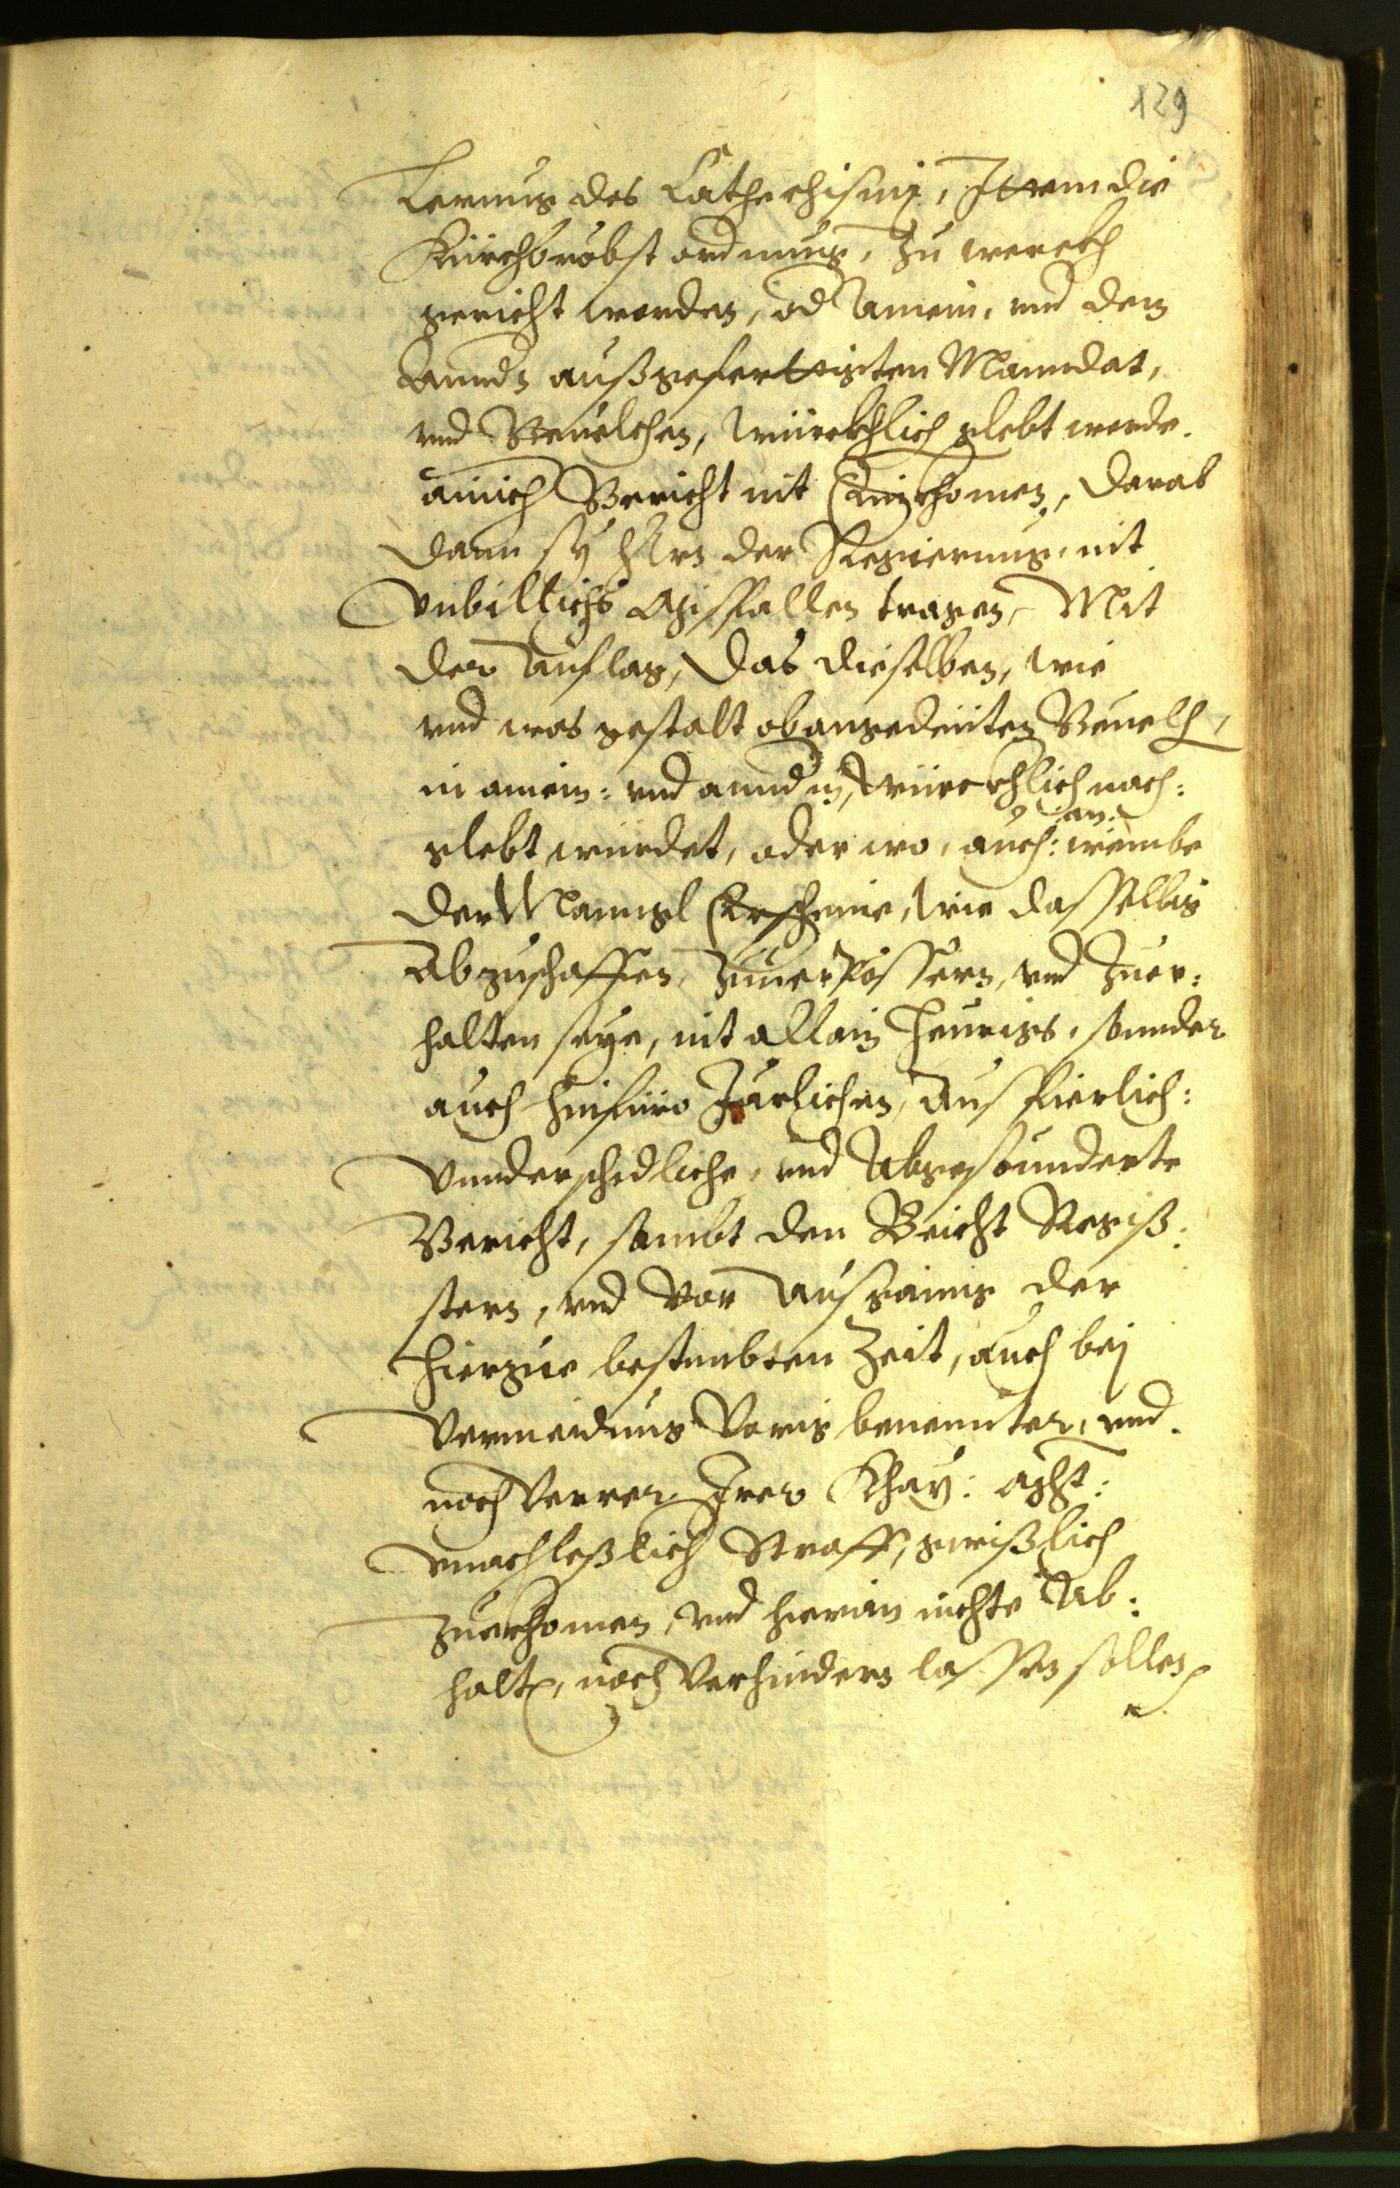 129
Lernung des Cathechismj, Item die
Kürchbröbst ordnung, Zu werckh
gericht worden, od Ainem, und dem
Annd außgeferttigten Manndat,
und Beuelchen, würckhlich glebt werde.
ainich Bericht nit Einkhomen, darab
dann sy Hern der Regierung, nit
Unbillichs Misfallen tragen, Mit
der Auflag, das dieselben, wie
und was gestalt obangedeuten Beuelch,
in ainem: und annd, würckhlich nach:
glebt würdet, oder wo, auch: an: weme
der Manngl Erscheine, wie dasselbig
Abzuschaffen, Zuuerpössern, und Zuer:
halten seye, nit allain heurigs, sonnder
auch hinfüro Järlichen, Ausfierlich:
Unnderschidliche, und Abgesönnderte
Bericht, sambt den Beicht Regis:
stern, und vor Ausgang der
hierzue bestimbten Zeit, auch bej
Vermeidung Vorig benennter, und
noch Verrer Irer Khay: Mt:
unnachleßlich Straff, gwißlich
Zuerkhomen, und hieran nichts Ab:
halten, noch Verhindern lassen sollen